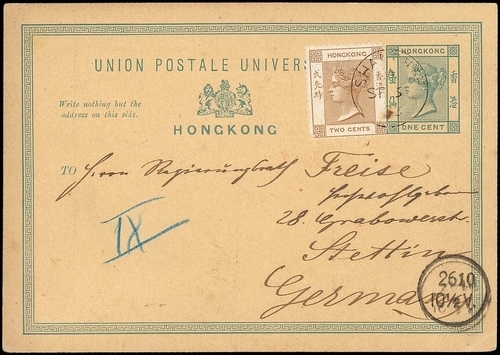 UNION POSTALE UNIVERS
HONGKONG
TWO CENTS
HONGKONG
ONE CENT
SHA
SP 3
Write nothing but the
address on this side.
HONGKONG
TO Herrn Regierungsrath Freise
28. Grabowerstr.
Stettin
Germa
IX
2610
10½V.